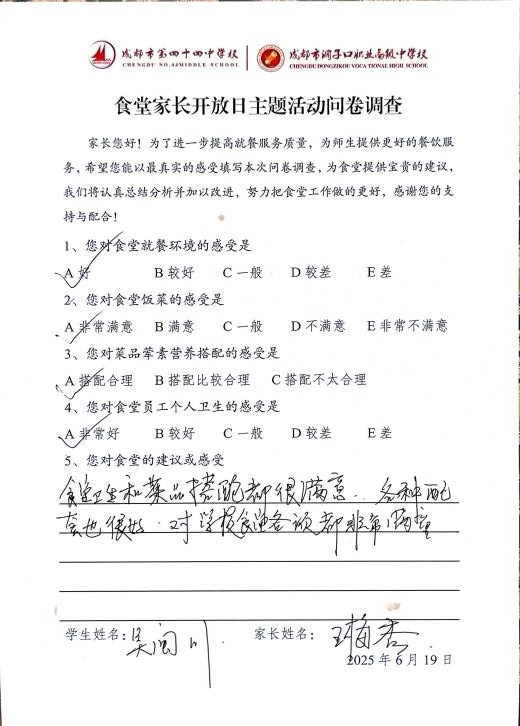 成都市第四十四中学校 成都市洞子口职业高级中学校
CHENGDU NO.44MIDDLE SCHOOL CHENGDU DONGZIKOU VOCATIONAL HIGH SCHOOL
食堂家长开放日主题活动问卷调查
家长您好！为了进一步提高就餐服务质量，为师生提供更好的餐饮服
务，希望您能以最真实的感受填写本次问卷调查，为食堂提供宝贵的建议，
我们将认真总结分析并加以改进，努力把食堂工作做的更好，感谢您的支
持与配合！
1、您对食堂就餐环境的感受是
A 好 B 较好 C 一般 D 较差 E 差
2、您对食堂饭菜的感受是
A 非常满意 B 满意 C 一般 D 不满意 E 非常不满意
3、您对菜品荤素营养搭配的感受是
A 搭配合理 B 搭配比较合理 C 搭配不太合理
4、您对食堂员工个人卫生的感受是
A 非常好 B 较好 C 一般 D 较差 E 差
5、您对食堂的建议或感受
食堂卫生和菜品搭配都很满意．各种配
也很好．对学校食堂各项都非常满意
学生姓名： 吴 川 家长姓名： 王梅杏
2025 年 6 月 19 日